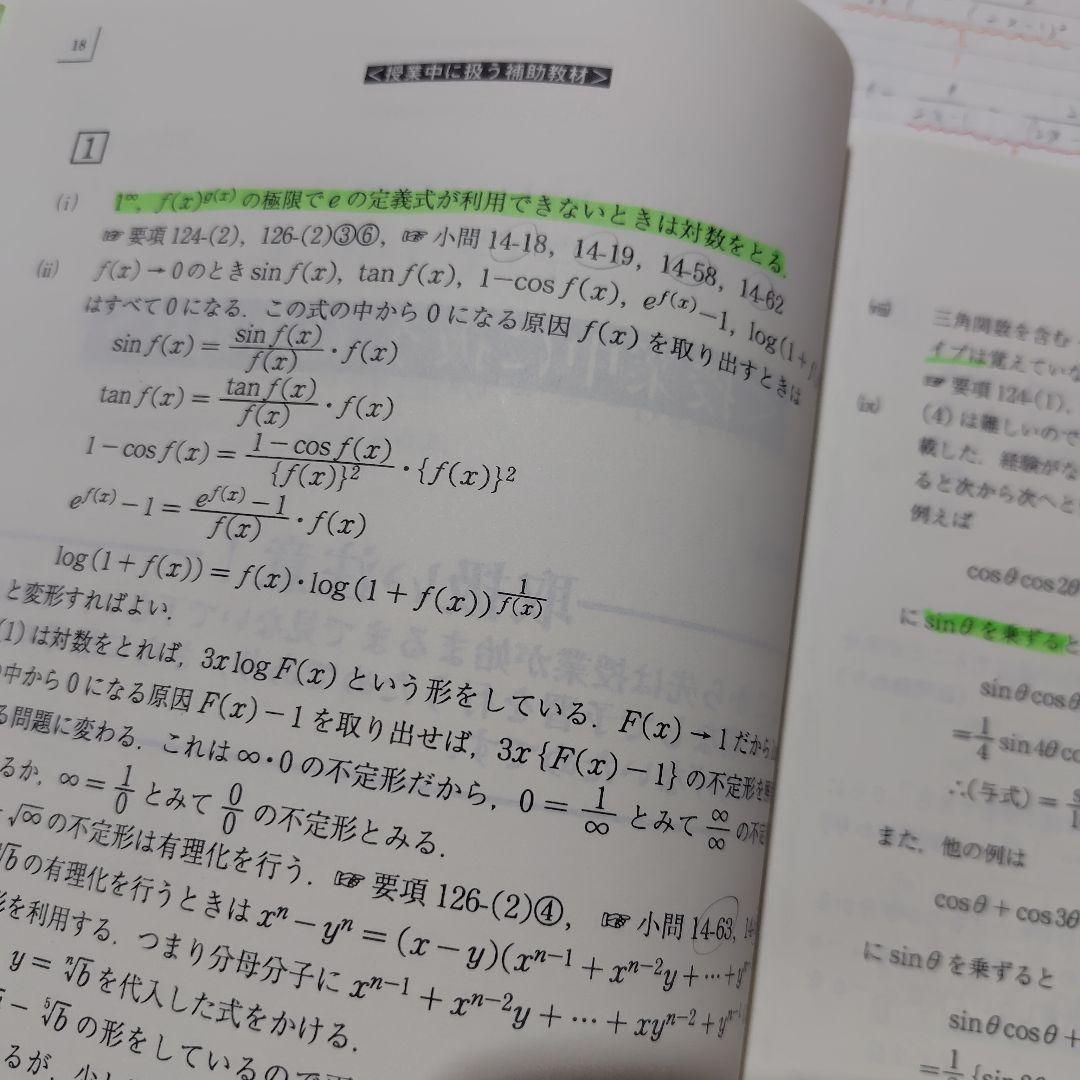 18
<授業中に扱う補助教材>
1
(i) 1^∞, f(x)^{g(x)} の極限で e の定義式が利用できないときは対数をとる.
☞ 要項 124-(2), 126-(2)③⑥, ☞ 小問 14-18, 14-19, 14-58, 14-62
(ii) f(x)→0 のとき sin f(x), tan f(x), 1−cos f(x), e^{f(x)}−1, log(1+
はすべて 0 になる. この式の中から 0 になる原因 f(x) を取り出すときは
sin f(x) = \frac{sin f(x)}{f(x)}・f(x)
tan f(x) = \frac{tan f(x)}{f(x)}・f(x)
1−cos f(x) = \frac{1−cos f(x)}{{f(x)}^2}・{f(x)}^2
e^{f(x)}−1 = \frac{e^{f(x)}−1}{f(x)}・f(x)
log(1+f(x)) = f(x)・log(1+f(x))^{\frac{1}{f(x)}}
と変形すればよい.
(1) は対数をとれば, 3x log F(x) という形をしている. F(x)→1 だから
中から 0 になる原因 F(x)−1 を取り出せば, 3x{F(x)−1} の不定形を
る問題に変わる. これは ∞・0 の不定形だから, 0 = \frac{1}{∞} とみて \frac{∞}{∞} の不定
るか, ∞ = \frac{1}{0} とみて \frac{0}{0} の不定形とみる.
√∞ の不定形は有理化を行う. ☞ 要項 126-(2)④, ☞ 小問 14-63,
b の有理化を行うときは x^n−y^n = (x−y)(x^{n−1}+x^{n−2}y+…+
を利用する. つまり分母分子に x^{n−1}+x^{n−2}y+…+xy^{n−2}+y^{n−1}
y = \sqrt[n]{b} を代入した式をかける.
− \sqrt[5]{b} の形をしているので
るが, 少し
(viii) 三角関数を含む
イプは覚えていな
☞ 要項 124-(1),
(ix) (4) は難しいので
載した. 経験がな
ると次から次へと
例えば
cosθcos2θ
に sinθ を乗ずると
sinθcosθ
=\frac{1}{4} sin4θco
∴(与式) =
また, 他の例は
cosθ+cos3θ
に sinθ を乗ずると
sinθcosθ+